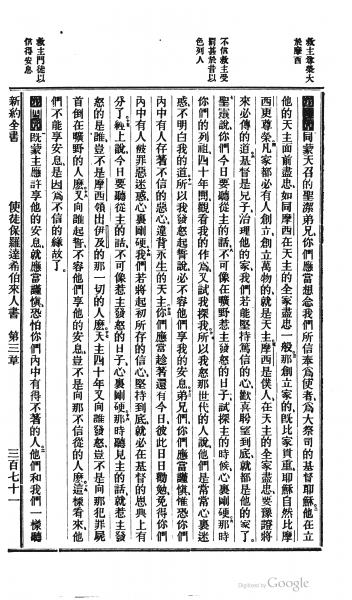 救主尊榮大
於摩西
不信救主受
罰甚於昔以
色列人
救主門徒以
信得安息
第三章 同蒙天召的聖潔弟兄你們應當想念我們所信奉爲使者爲大祭司的基督耶穌他在立
他的天主面前盡忠如同摩西在天主的全家盡忠一般那創立家的旣比家貴重耶穌自然比摩
西更尊榮凡家都必有人創立創立萬物的就是天主摩西是僕人在天主的全家盡忠要豫證將
來必傳的道基督是兒子治理他的家我們若能堅持篤信的心歡喜盼望到底就都是他的家了
聖靈說你們今日要聽從主的話不可像在曠野惹主發怒的日子試探主的時候心裏剛硬那時
你們的列祖四十年間觀看我的作爲又試我探我所以我發怒那世代的人說他們是常常心裏迷
惑不明白我的道所以我發怒起誓說必不容他們享我的安息弟兄們你們應當謹愼惟恐你們
內中有人存著不信的惡心違背永生的天主你們應當趁著還有今日彼此日日勸勉免得你們
內中有人被罪惡迷惑心裏剛硬我們若將起初所存的信心堅持到底就必在基督的恩典上有
分了經上說今日要聽從主的話不可像惹主發怒的日子心裏剛硬那時聽見主的話就惹主發
怒的是誰豈不是摩西領出伊及的那一切的人麽天主四十年又向誰發怒豈不是向那犯罪屍
首倒在曠野的人麽又向誰起誓不容他們享他的安息豈不是向那不信從的人麽這樣看來他
們不能享安息是因爲不信的緣故了
第四章 旣蒙主應許享他的安息就應當謹愼恐怕你們內中有得不著的人他們和我們一樣聽
新約全書 使徒保羅達希伯來人書 第三章 三百七十一
Digitized by Google